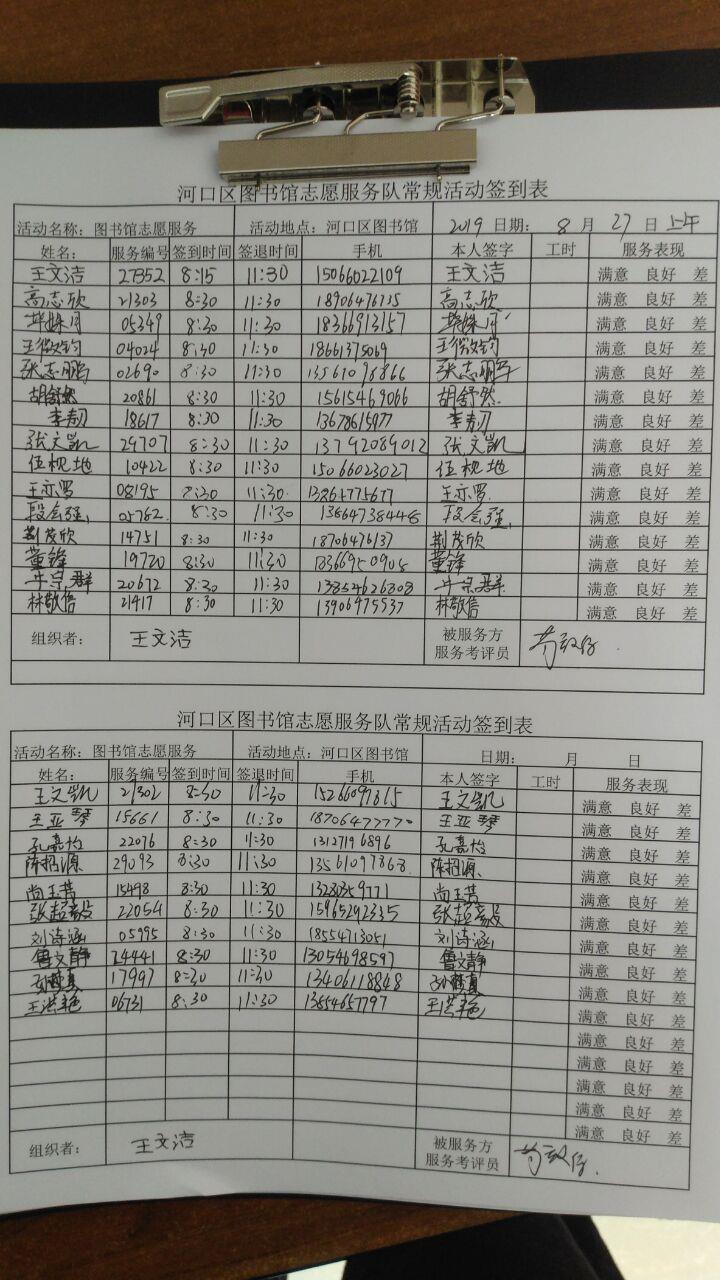 河口区图书馆志愿服务队常规活动签到表
活动名称：图书馆志愿服务 活动地点：河口区图书馆 2019 日期： 8 月 27 日 上午
姓名： 服务编号 签到时间 签退时间 手机 本人签字 工时 服务表现
王文洁 27352 8:15 11:30 15066022109 王文洁 满意 良好 差
高志欣 21303 8:30 11:30 18906476115 高志欣 满意 良好 差
05349 8:30 11:30 18366913157 满意 良好 差
04024 8:30 11:30 18661375069 满意 良好 差
张志鹏 02690 8:30 11:30 13561096866 张志鹏 满意 良好 差
胡舒然 20861 8:30 11:30 15615469066 胡舒然 满意 良好 差
李韧 18617 8:30 11:30 13678615977 李韧 满意 良好 差
张文凯 29707 8:30 11:30 13792089012 张文凯 满意 良好 差
伍枕地 10422 8:30 11:30 15066023027 伍枕地 满意 良好 差
王亦罗 08195 8:30 11:30 王亦罗 满意 良好 差
段会强 05762 8:30 11:30 13864738448 段会强 满意 良好 差
荆茂欣 14751 8:30 11:30 18706476137 荆茂欣 满意 良好 差
董锋 19720 8:30 11:30 18366950908 董锋 满意 良好 差
牛宗群 20672 8:30 11:30 13854626808 牛宗群 满意 良好 差
林敬信 21417 8:30 11:30 13906475537 林敬信 满意 良好 差
组织者： 王文洁 被服务方
服务考评员
河口区图书馆志愿服务队常规活动签到表
活动名称：图书馆志愿服务 活动地点：河口区图书馆 日期： 月 日
姓名： 服务编号 签到时间 签退时间 手机 本人签字 工时 服务表现
王文凯 21302 8:30 11:30 15266097615 王文凯 满意 良好 差
王亚琴 15661 8:30 11:30 18706477770 王亚琴 满意 良好 差
孔嘉怡 22076 8:30 11:30 13127196896 孔嘉怡 满意 良好 差
陈招源 29093 8:30 11:30 13561097868 陈招源 满意 良好 差
尚玉菁 15498 8:30 11:30 13280359771 尚玉菁 满意 良好 差
张超毅 22054 8:30 11:30 15965292335 张超毅 满意 良好 差
刘诗涵 05995 8:30 11:30 18554713051 刘诗涵 满意 良好 差
鲁文静 24441 8:30 11:30 13054698597 鲁文静 满意 良好 差
17997 8:30 11:30 13406118848 满意 良好 差
王洪艳 06731 8:30 11:30 13854657797 王洪艳 满意 良好 差
满意 良好 差
满意 良好 差
满意 良好 差
满意 良好 差
满意 良好 差
组织者： 王文洁 被服务方
服务考评员